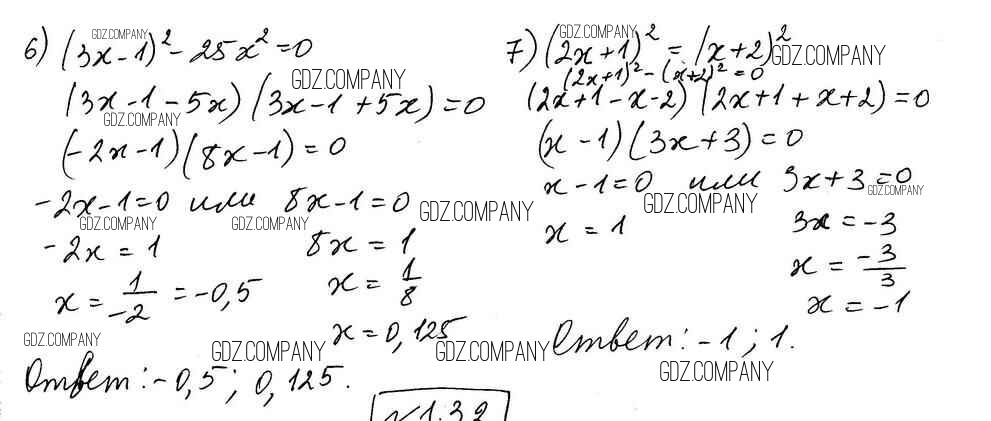 6) (3x-1)² - 25x² = 0
(3x-1-5x)(3x-1+5x)=0
(-2x-1)(8x-1)=0
-2x-1=0 или 8x-1=0
-2x = 1
8x = 1
x = 1/-2 = -0,5
x = 1/8
x = 0,125
Ответ: -0,5; 0,125.
7) (2x+1)² = (x+2)²
(2x+1)² - (x+2)² = 0
(2x+1-x-2)(2x+1+x+2)=0
(x-1)(3x+3)=0
x-1=0 или 3x+3=0
x = 1
3x = -3
x = -3/3
x = -1
Ответ: -1; 1.
№1.32
GDZ.COMPANY
GDZ.COMPANY
GDZ.COMPANY
GDZ.COMPANY
GDZ.COMPANY
GDZ.COMPANY
GDZ.COMPANY
GDZ.COMPANY
GDZ.COMPANY
GDZ.COMPANY
GDZ.COMPANY
GDZ.COMPANY
GDZ.COMPANY
GDZ.COMPANY